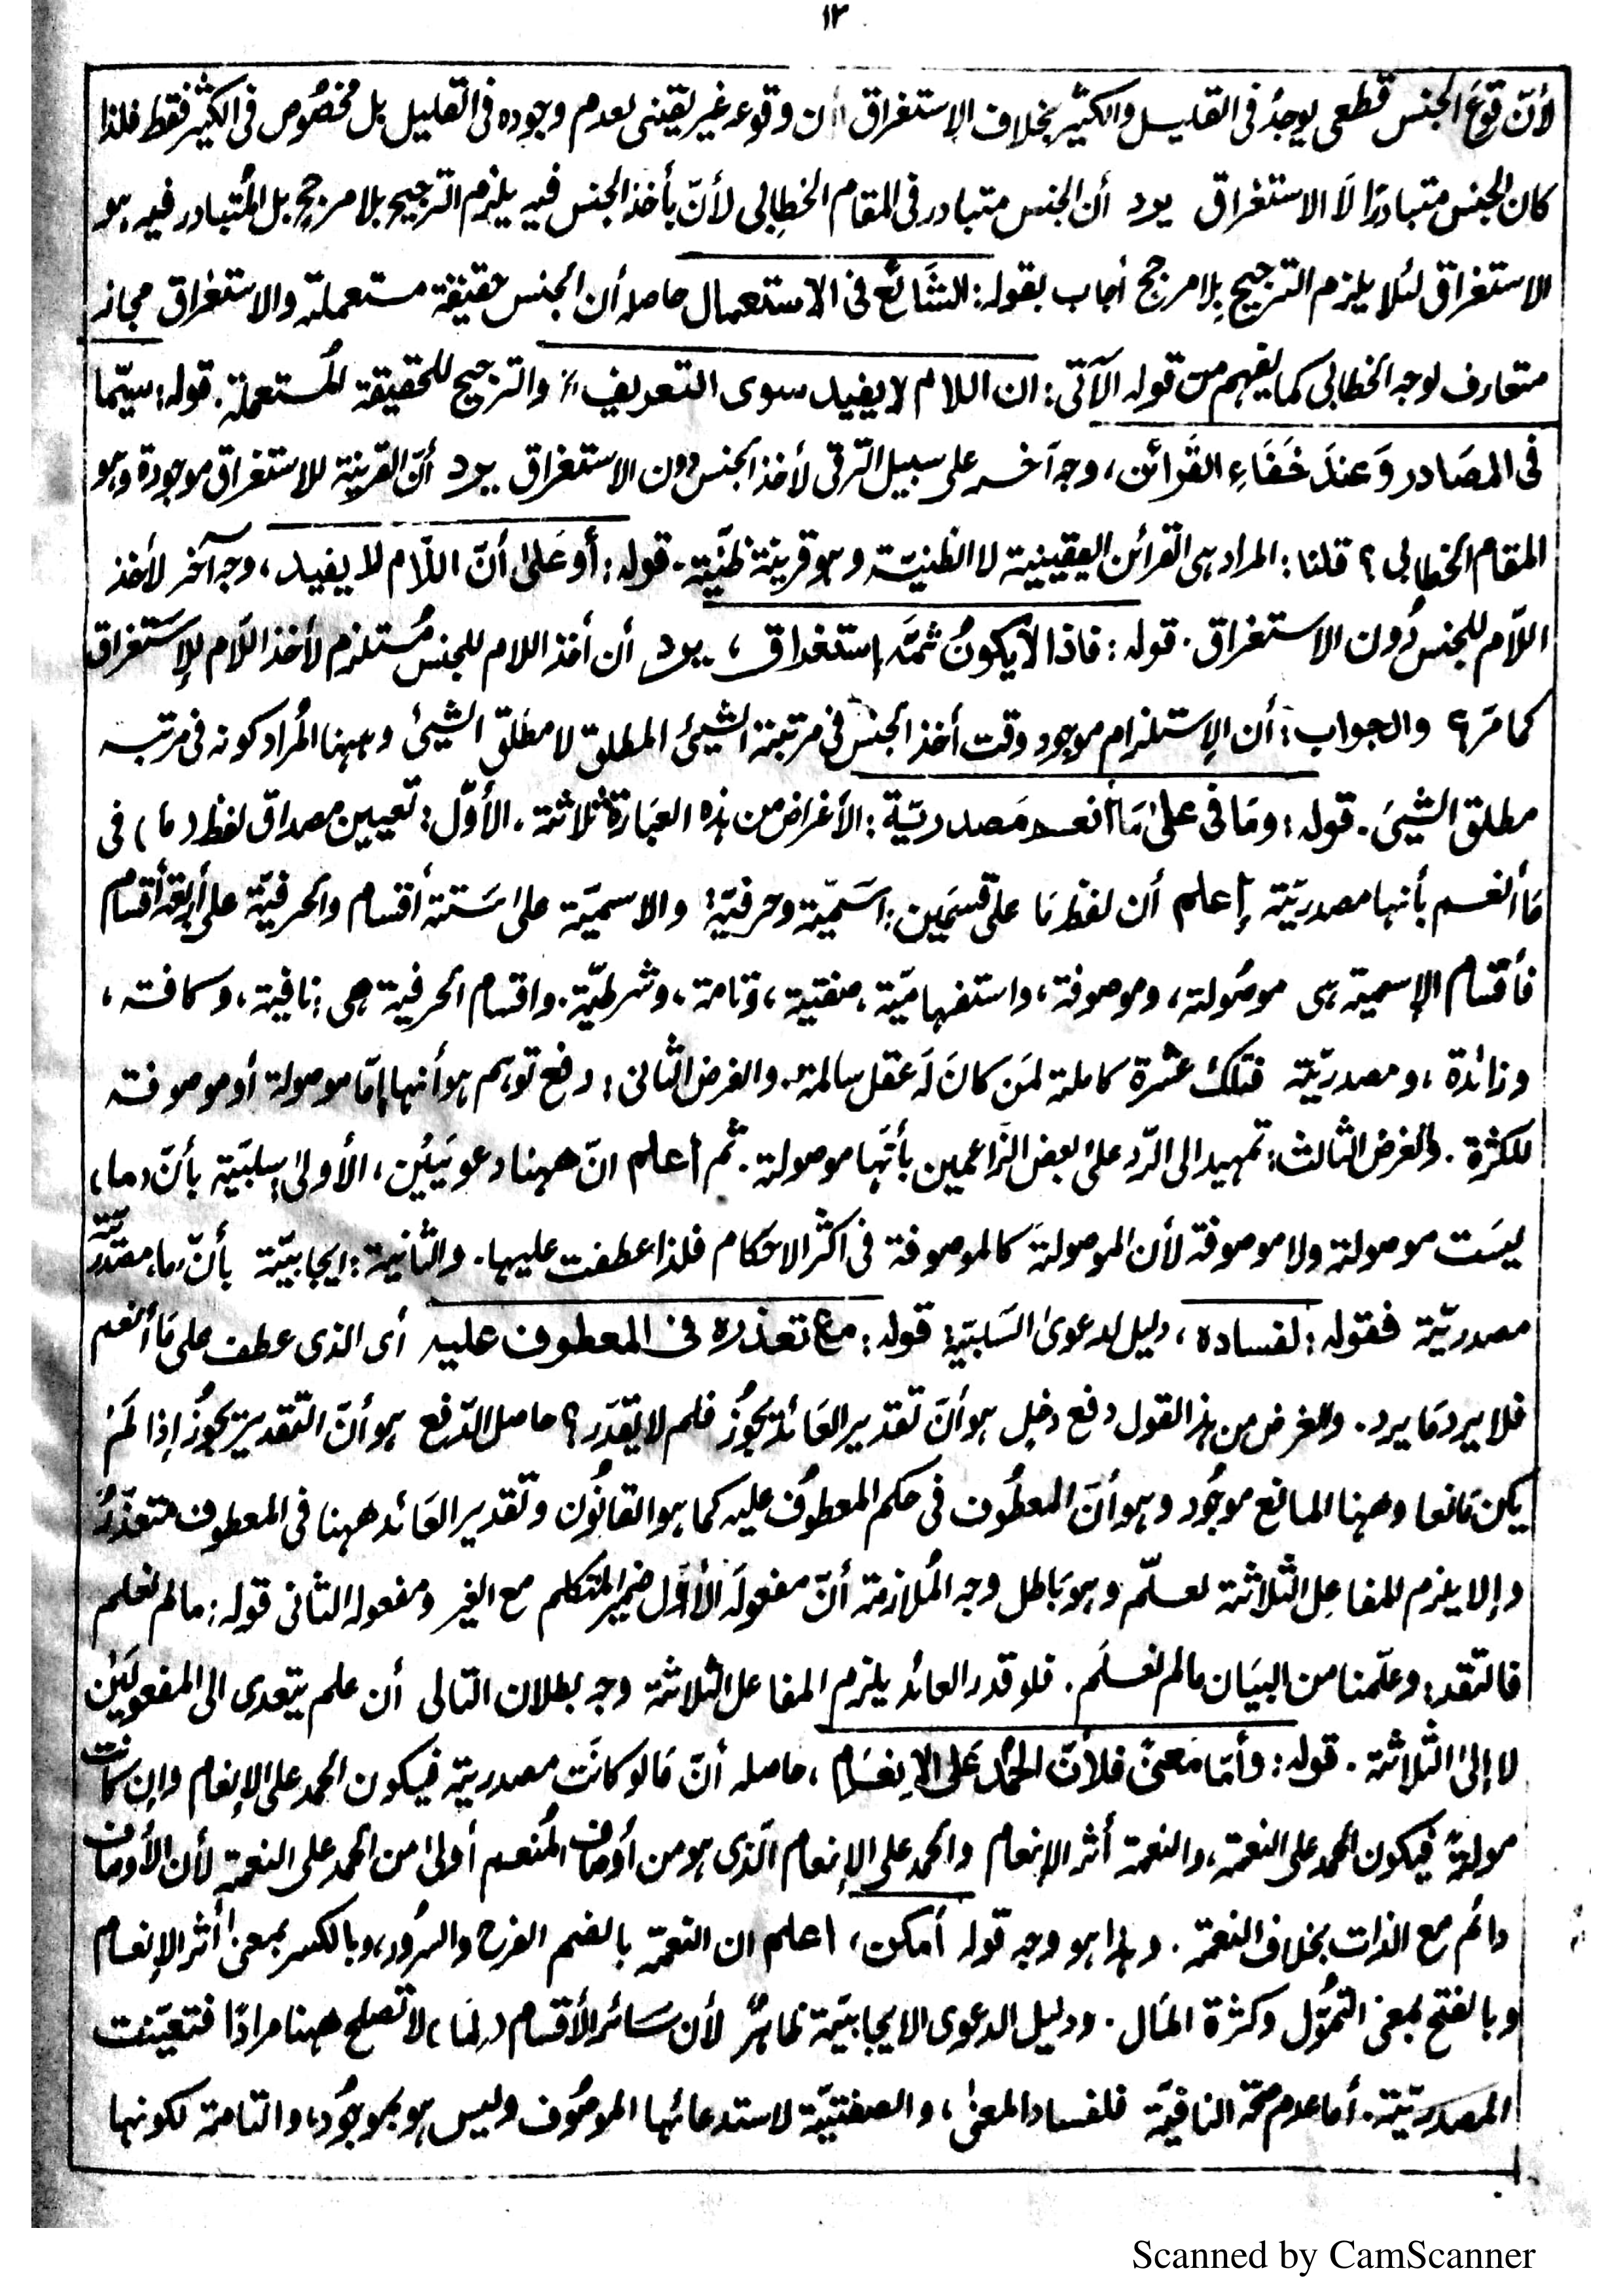 ١٢
لأنّ وقوعَ الجنس قطعى يوجدُ فى القليل والكثير بخلاف الاستغراق لأن وقوعه غير يقينى لعدم وجوده فى القليل بل مخصُوص فى الكثير فقط فلذا
كان الجنس متبادرًا لَا الاستغراق يرد أن الجنس متبادر فى المقام الخطِابى لأنّ بأخذ الجنس فيه يلزم الترجيح بلا مرجح بل المُتبادر فيه هو
الاستغراق لئلا يلزم الترجيح بِلا مرجح أجاب بقوله: الشَّائع فى الاستعمال حاصله أن الجنس حقيقة مستعملة والاستغراق مجاز
متعارف لوجه الخطابى كما يفهم من قوله الآتى: ان اللام لا يفيد سوى التعريف الخ والترجيح للحقيقة المُستعملة. قوله: سيّما
فى المصَادر وَعندَ خَفَاءِ القَرائن، وجه آخر على سبيل الترقى لأخذ الجنس دون الاستغراق يرد أنّ القرينة للاستغراق موجودة وهو
المقام الخطابى؟ قلنا: المراد هى القرائن اليقينية لا الظنيّة وهو قرينة ظنّية. قوله: أو عَلىٰ أنّ اللّام لا يفيد، وجه آخر لأخذ
اللّام للجنس دُون الاستغراق. قوله: فاذا لا يكونُ ثمَّه استغراق، يرد أن أخذ اللام للجنس مُستلزم لأخذ اللّام للاِستَغراق
كما مَر؟ والجواب: أن الإستلزام موجود وقت أخذ الجنس فى مرتبة الشيئ المطلق لا مطلق الشيئ وههنا المُراد كونه فى مرتبه
مطلق الشيئ. قوله: ومَا فى علىٰ مَا أنعم مَصدريّة: الأغراض من هذه العبَارة ثلاثة. الأوّل: تعيين مصداق لفظ (ما) فى
مَا أنعم بأنها مصدريّة إعلم أن لفظ مَا على قسمَين: اسَميّة وحرفيّة: والاسميّة علىٰ سَتة أقسام والحرفيّة على أربعة أقسام
فأقسام الإسمية هى موصُولة، وموصوفة، واستفهاميّة، صفتية، وتامة، وشرطيّة. واقسام الحرفية هى: نافية، وكافة،
وزائدة، ومصدريّة فتلك عشرة كاملة لمَن كانَ لَه عقل سالمة. والغرض الثانى: دفع توهم هو أنها إمّا موصولة أو موصوفة
للكثرة. والغرض الثالث: تمهيد الى الرّد علىٰ بعض الزّاعمين بأنّها موصولة. ثم أعلم انّ ههنا دعويَيْن، الأولىٰ: سلبّية بأنّ (ما)
ليسَت موصولة ولا موصوفة لأن الموصولة كالموصوفة فى أكثر الاحكام فلذا عطفت عليها. والثانية: ايجابيّة بأنّ (ما) مصدريّة
مصدريّة فقوله: لفساده، دليل لدعوىٰ السَلبيّة: قوله: مع تعذره فى المعطوف عليه أى الذى عطف على مَا أنعم
فلا يرد مَا يرد. والغرض من هذ القول دفع دخل هو أنّ تقدير العَائد يجُوزُ فلم لا يُقدَر؟ حاصل الدّفع هو أنّ التقدير يجُوزُ إذا لَمْ
يكن مَانعا وههنا المانع موجُود وهو أنّ المعطُوف فى حكم المعطوُف عليه كما هو القانُون وتقدير العَائد ههنا فى المعطوف متعذّرُ
وإلا يلزم للمفاعِل الثلاثة لعلّم وهو بَاطل وجه المُلازمة أنّ مفعولَه الأوّل ضمير المتكلم مع الغير ومفعوله الثانى قوله: مالم نعلم
فالتقدير وعلّمنا من البيَان مالم نعلَم. فلو قدر العائد يلزم المفاعل الثلاثة وجه بطلان التالى أن علم يتعدى الى المفعولَيْن
لا إلىٰ الثلاثة. قوله: وأمّا مَعنىً فلأنّ الحمَد عَلى الإنعَام، حاصله أنّ مَا لَو كانَت مصدرية فيكون الحمد على الإنعام وإن كانت
مولةً فيكون الحمد على النعمة، والنعمة أثر الإنعام والحمد على الإنعام الّذى هو من أوصاف المُنعم أولىٰ من الحمد على النعمة لأن الأوصاف
دائم مع الذات بخلاف النعمة. وهذا هو وجه قوله أمكن، اعلم ان النعمة بالضم الفرح والسُرور، وبالكسر بمعنىٰ أثر الإنعام
وبالفتح بمعنى التموُّل وكثرة المَال. ودليل الدعوى الايجابيّة ظاهرٌ لأن سَائر الأقسام (لما) لا تصلح ههنا مرادًا فتعيّنت
المصدريّة. أما عدم صحة النافيّة فلفساد المعنىٰ، والصفتيّة لاستدعائها الموصُوف وليس هو بموجُود، والتامة لكونها
Scanned by CamScanner